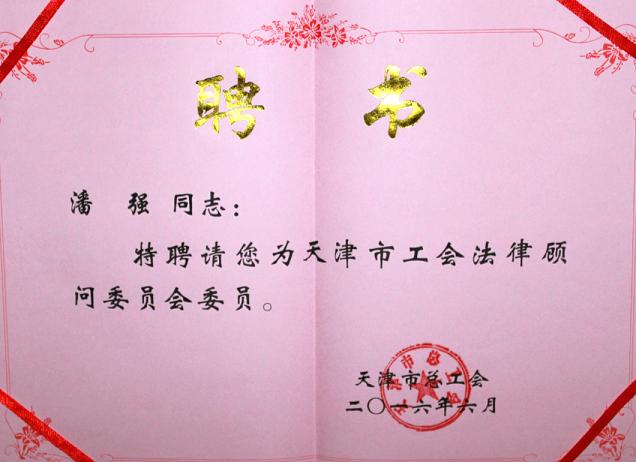 聘 书
潘 强 同志：
特聘请您为天津市工会法律顾
问委员会委员。
天津市总工会
二〇一六年六月
天津市总工会